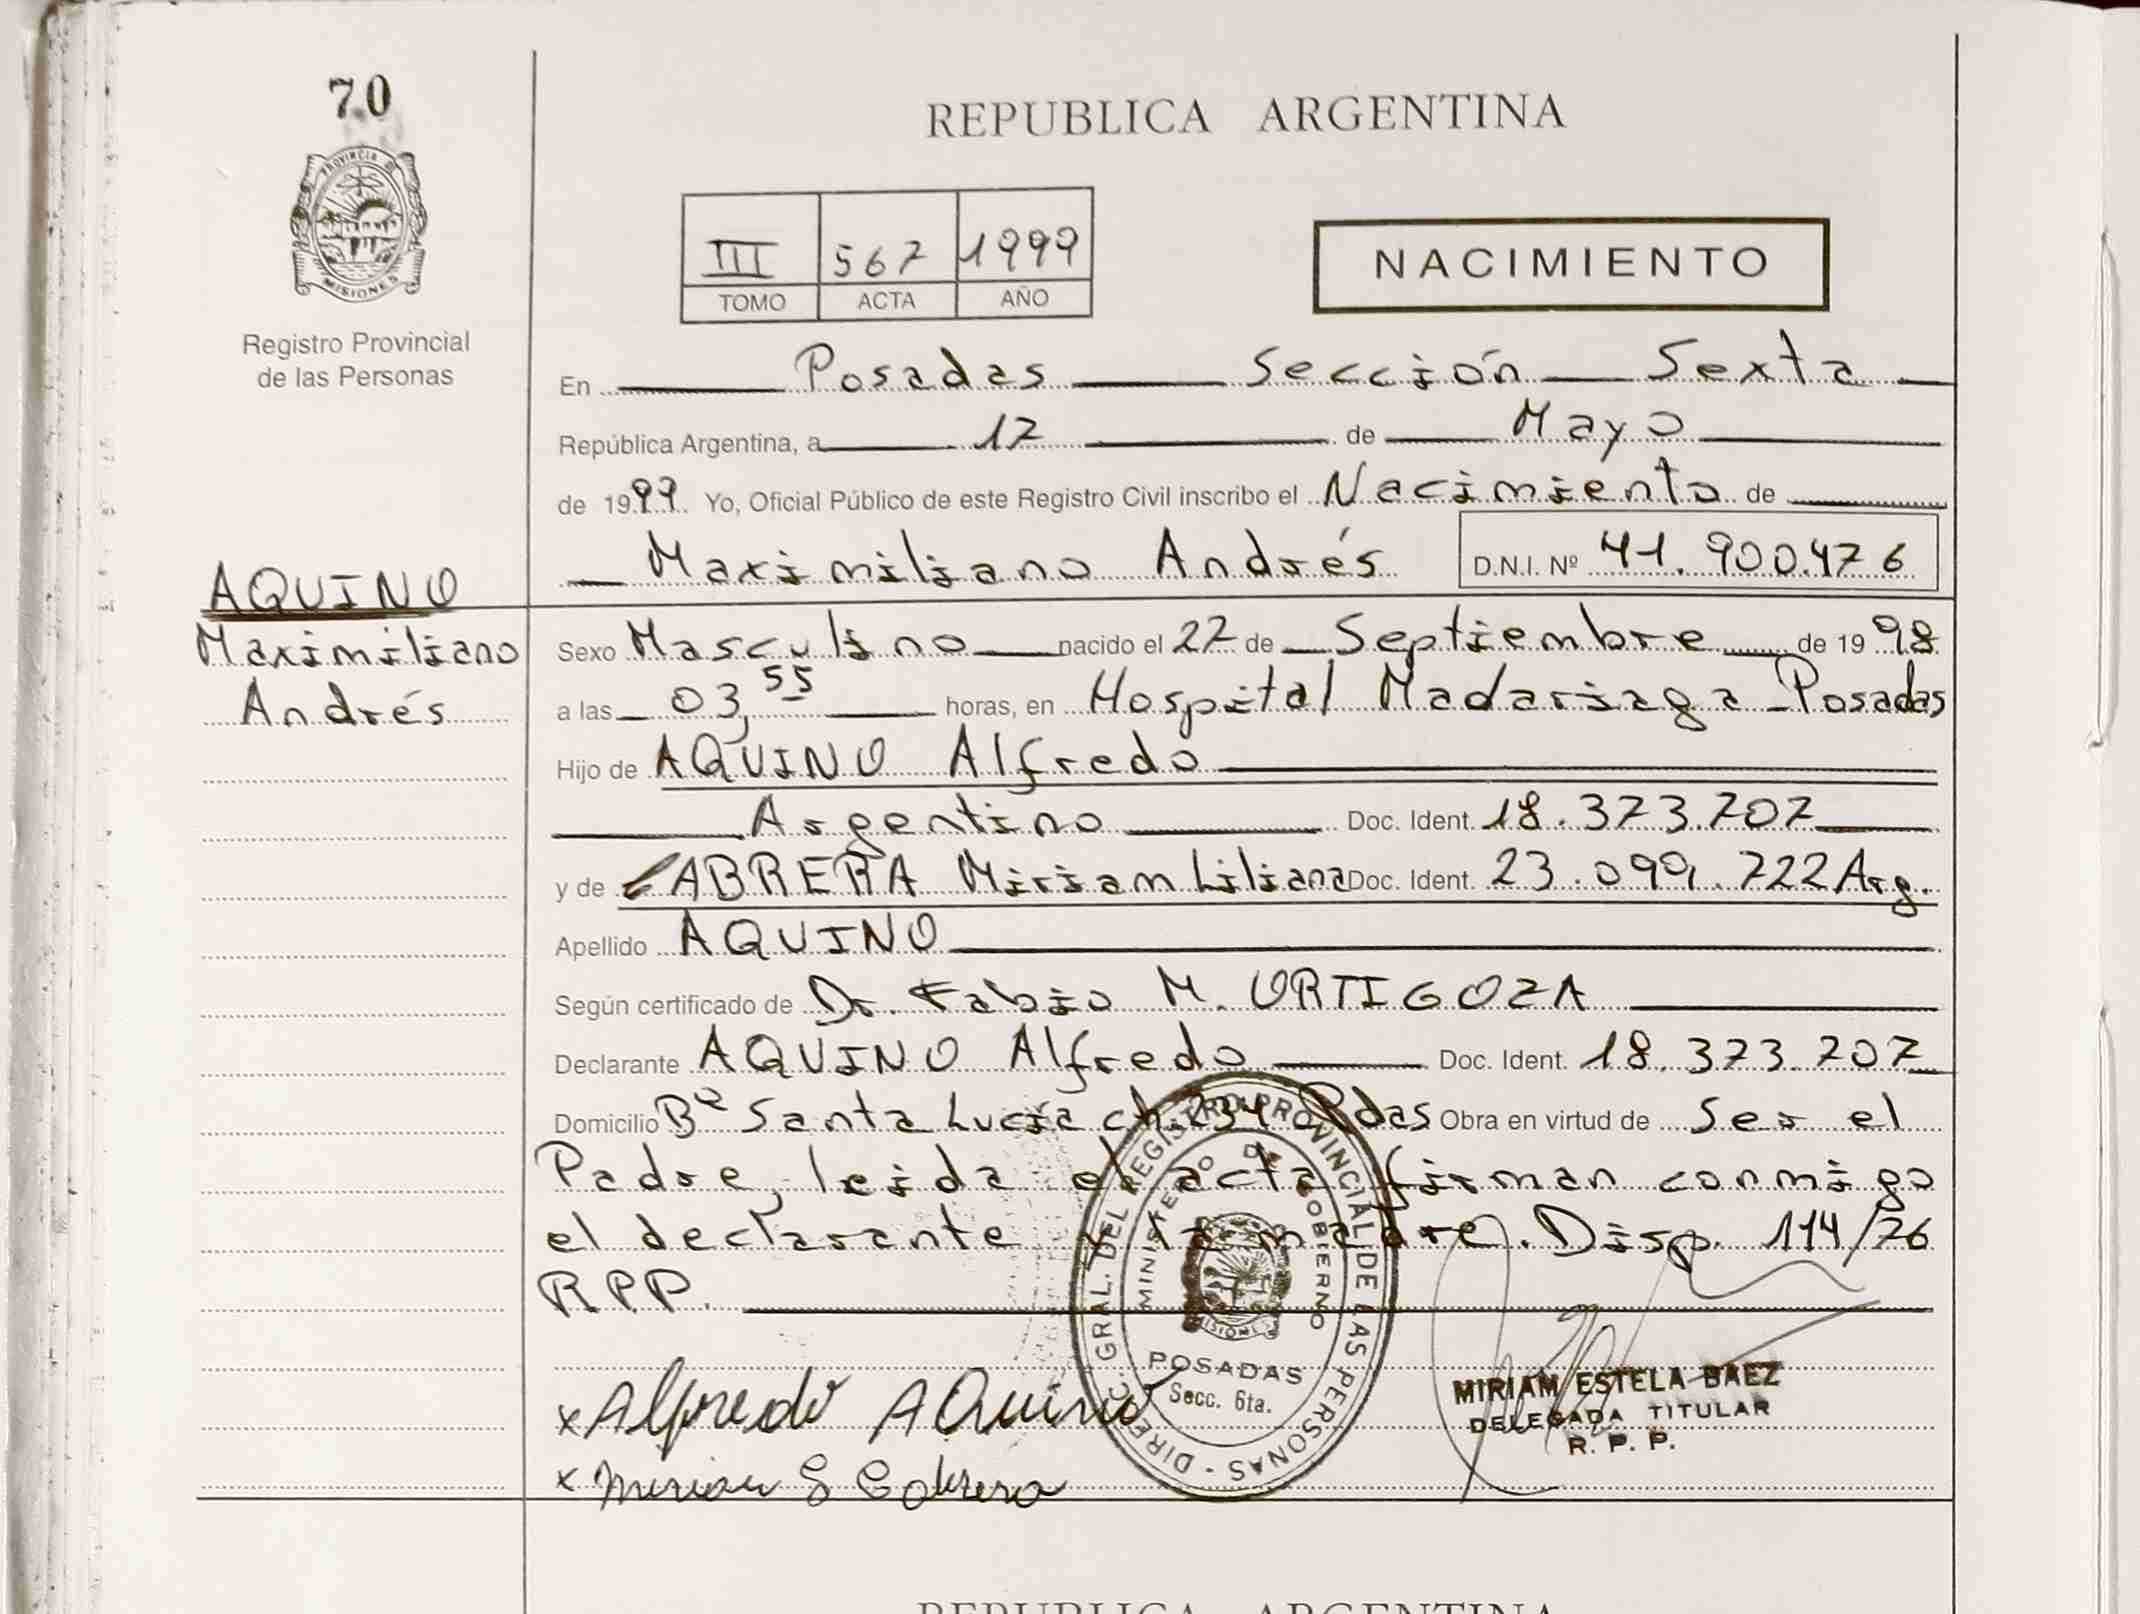 70
PROVINCIA DE
MISIONES
Registro Provincial
de las Personas
REPUBLICA ARGENTINA
III 567 1999
TOMO ACTA AÑO
NACIMIENTO
En Posadas Sección Sexta
República Argentina, a 17 de Mayo
de 1999 Yo, Oficial Público de este Registro Civil inscribo el Nacimiento de
Maximiliano Andrés D.N.I. Nº 41.900.476
AQUINO
Maximiliano
Andrés
Sexo Masculino nacido el 27 de Septiembre de 1998
a las 03,55 horas, en Hospital Madariaga - Posadas
Hijo de AQUINO Alfredo
Argentino Doc. Ident. 18.373.707
y de CABRERA Miriam Liliana Doc. Ident. 23.099.722 Arg.
Apellido AQUINO
Según certificado de Dr. Fabio M. ORTIGOZA
Declarante AQUINO Alfredo Doc. Ident. 18.373.707
Domicilio Bº Santa Lucía ch. 234 Pdas Obra en virtud de Ser el
Padre, leida el acta firman conmigo
el declarante y la madre. Disp. 114/76
RPP.
DIREC. GRAL. DEL REGISTRO PROVINCIAL DE LAS PERSONAS
MINISTERIO DE GOBIERNO
MISIONES
POSADAS
Secc. 6ta.
x Alfredo AQuino
MIRIAM ESTELA BAEZ
DELEGADA TITULAR
R. P. P.
x Miriam L Cabrera
REPUBLICA ARGENTINA